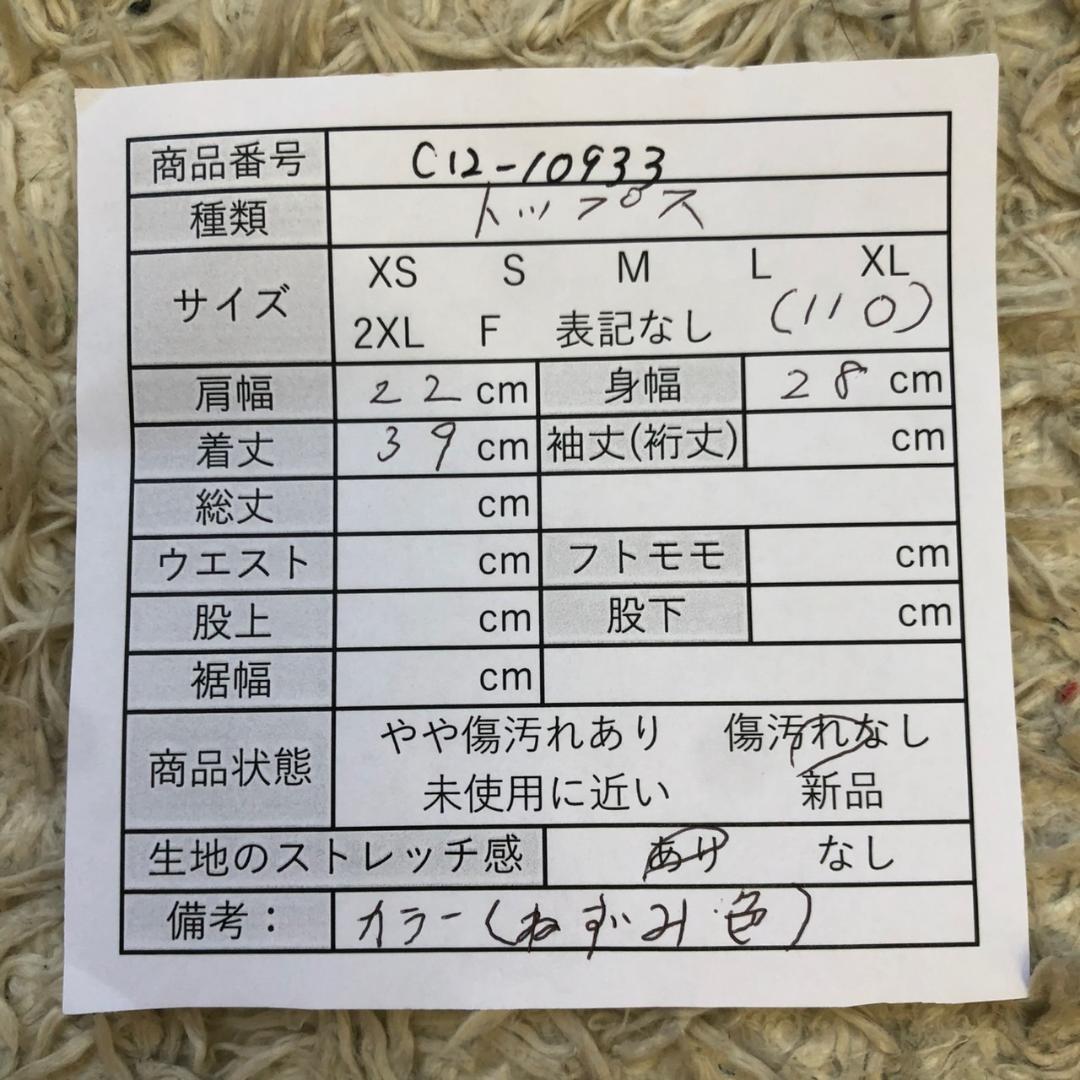 商品番号 C12-10933
種類 トップス
サイズ XS S M L XL
2XL F 表記なし (110)
肩幅 22 cm 身幅 28 cm
着丈 39 cm 袖丈(裄丈) cm
総丈 cm
ウエスト cm フトモモ cm
股上 cm 股下 cm
裾幅 cm
商品状態 やや傷汚れあり 傷汚れなし
未使用に近い 新品
生地のストレッチ感 あり なし
備考： カラー(ねずみ色)